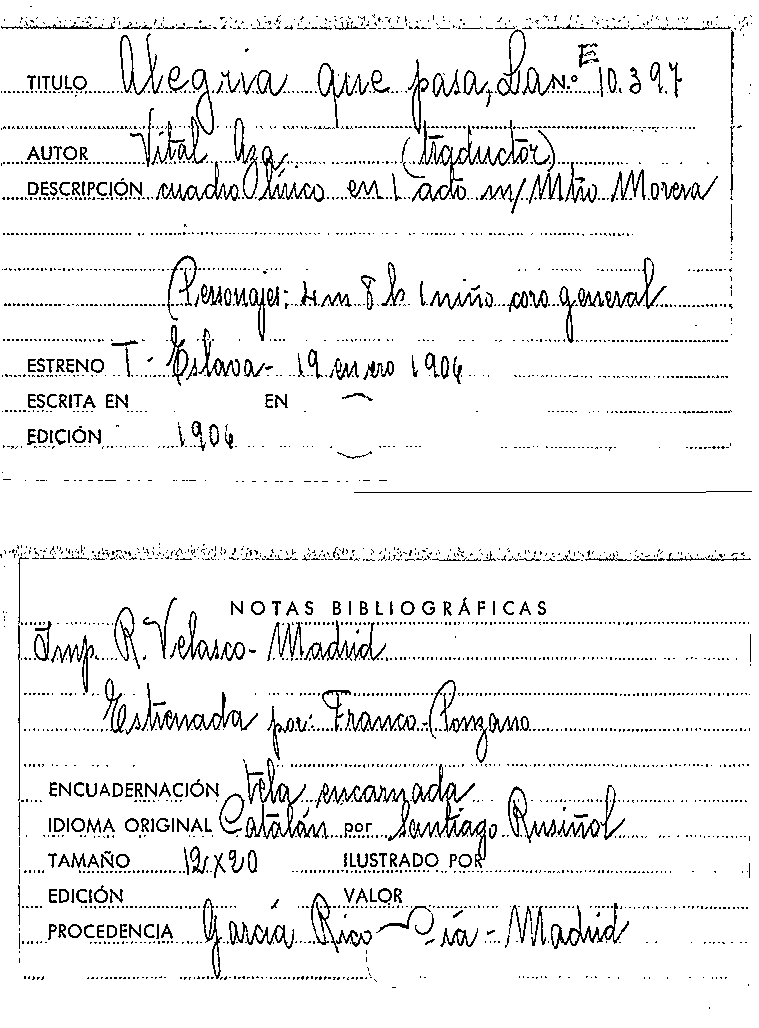 TITULO Alegria que pasa, La N.º E 10.397
AUTOR Vital Aza (traductor)
DESCRIPCIÓN cuadro lírico en 1 acto m/ Mtro Morera
Personajes: 4 m 8 h 1 niño coro general
ESTRENO T. Eslava - 19 enero 1906
ESCRITA EN EN
EDICIÓN 1906
NOTAS BIBLIOGRÁFICAS
Imp. R. Velasco - Madrid
Estrenada por: Franco-Ponzano
ENCUADERNACIÓN tela encarnada
IDIOMA ORIGINAL Catalán por Santiago Rusiñol
TAMAÑO 12 x 20 ILUSTRADO POR
EDICIÓN VALOR
PROCEDENCIA García Rico Cía - Madrid